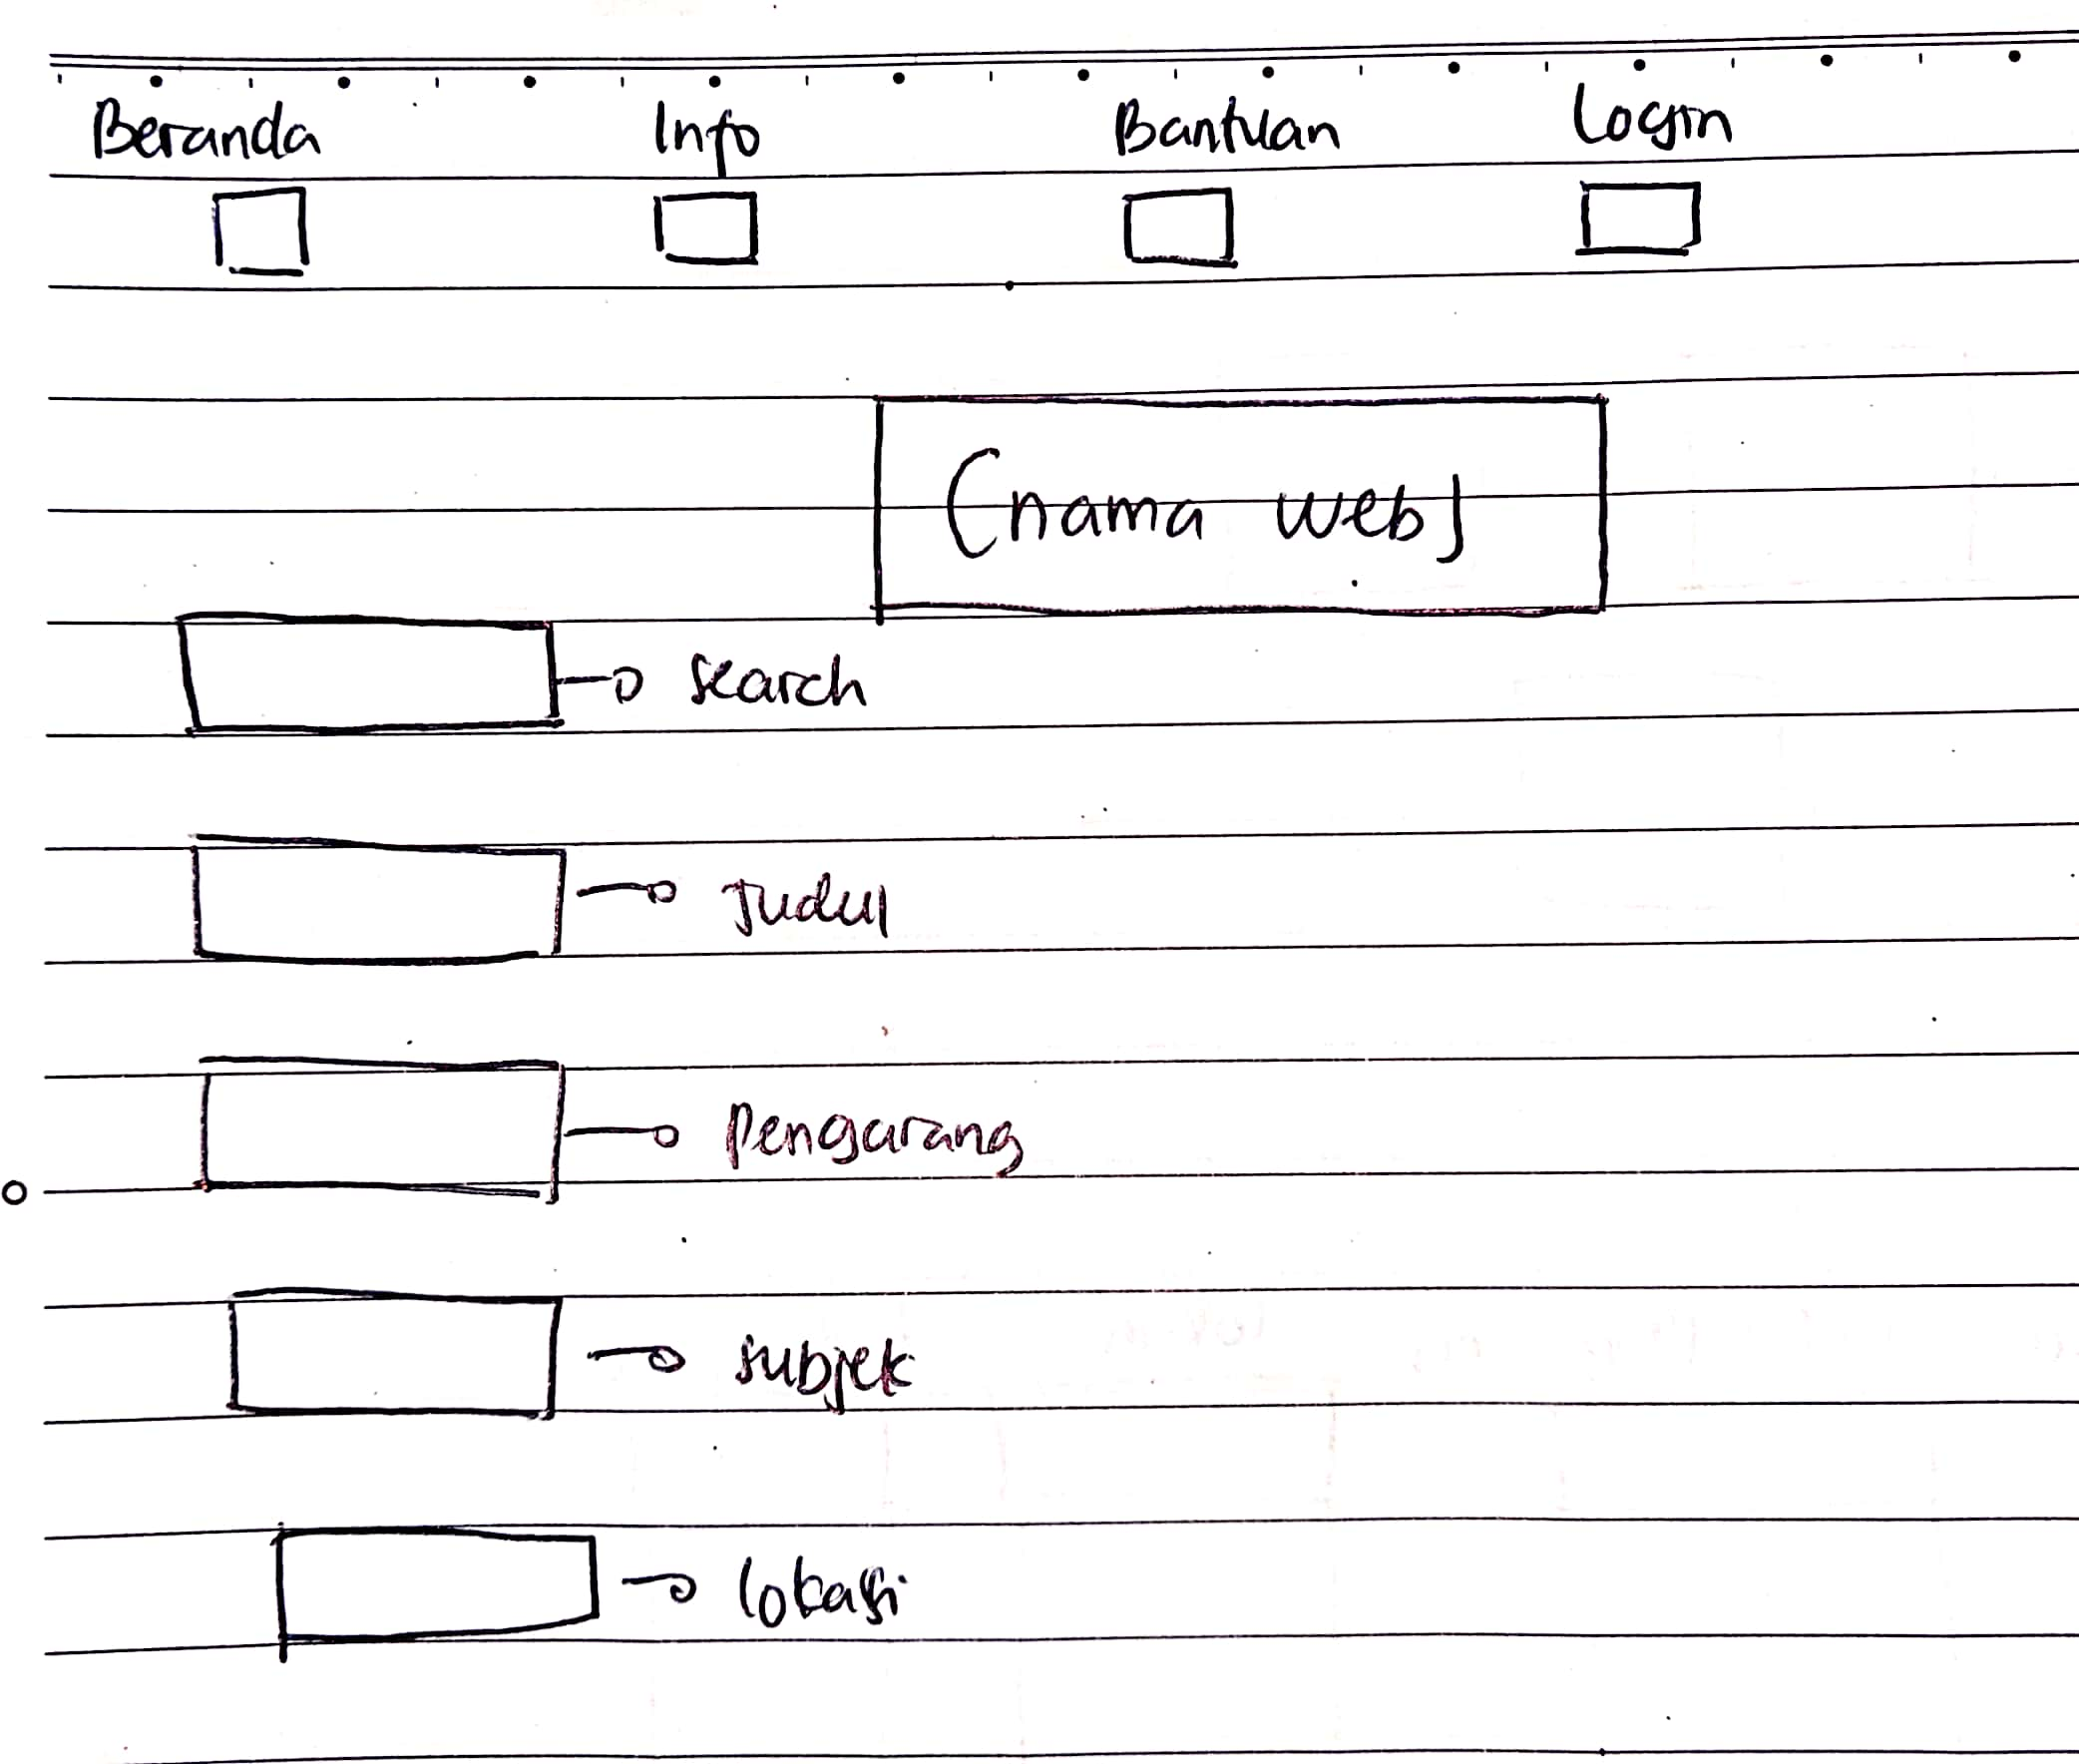 Beranda Info Bantuan Login
(nama web)
search
Judul
Pengarang
subjek
lokasi